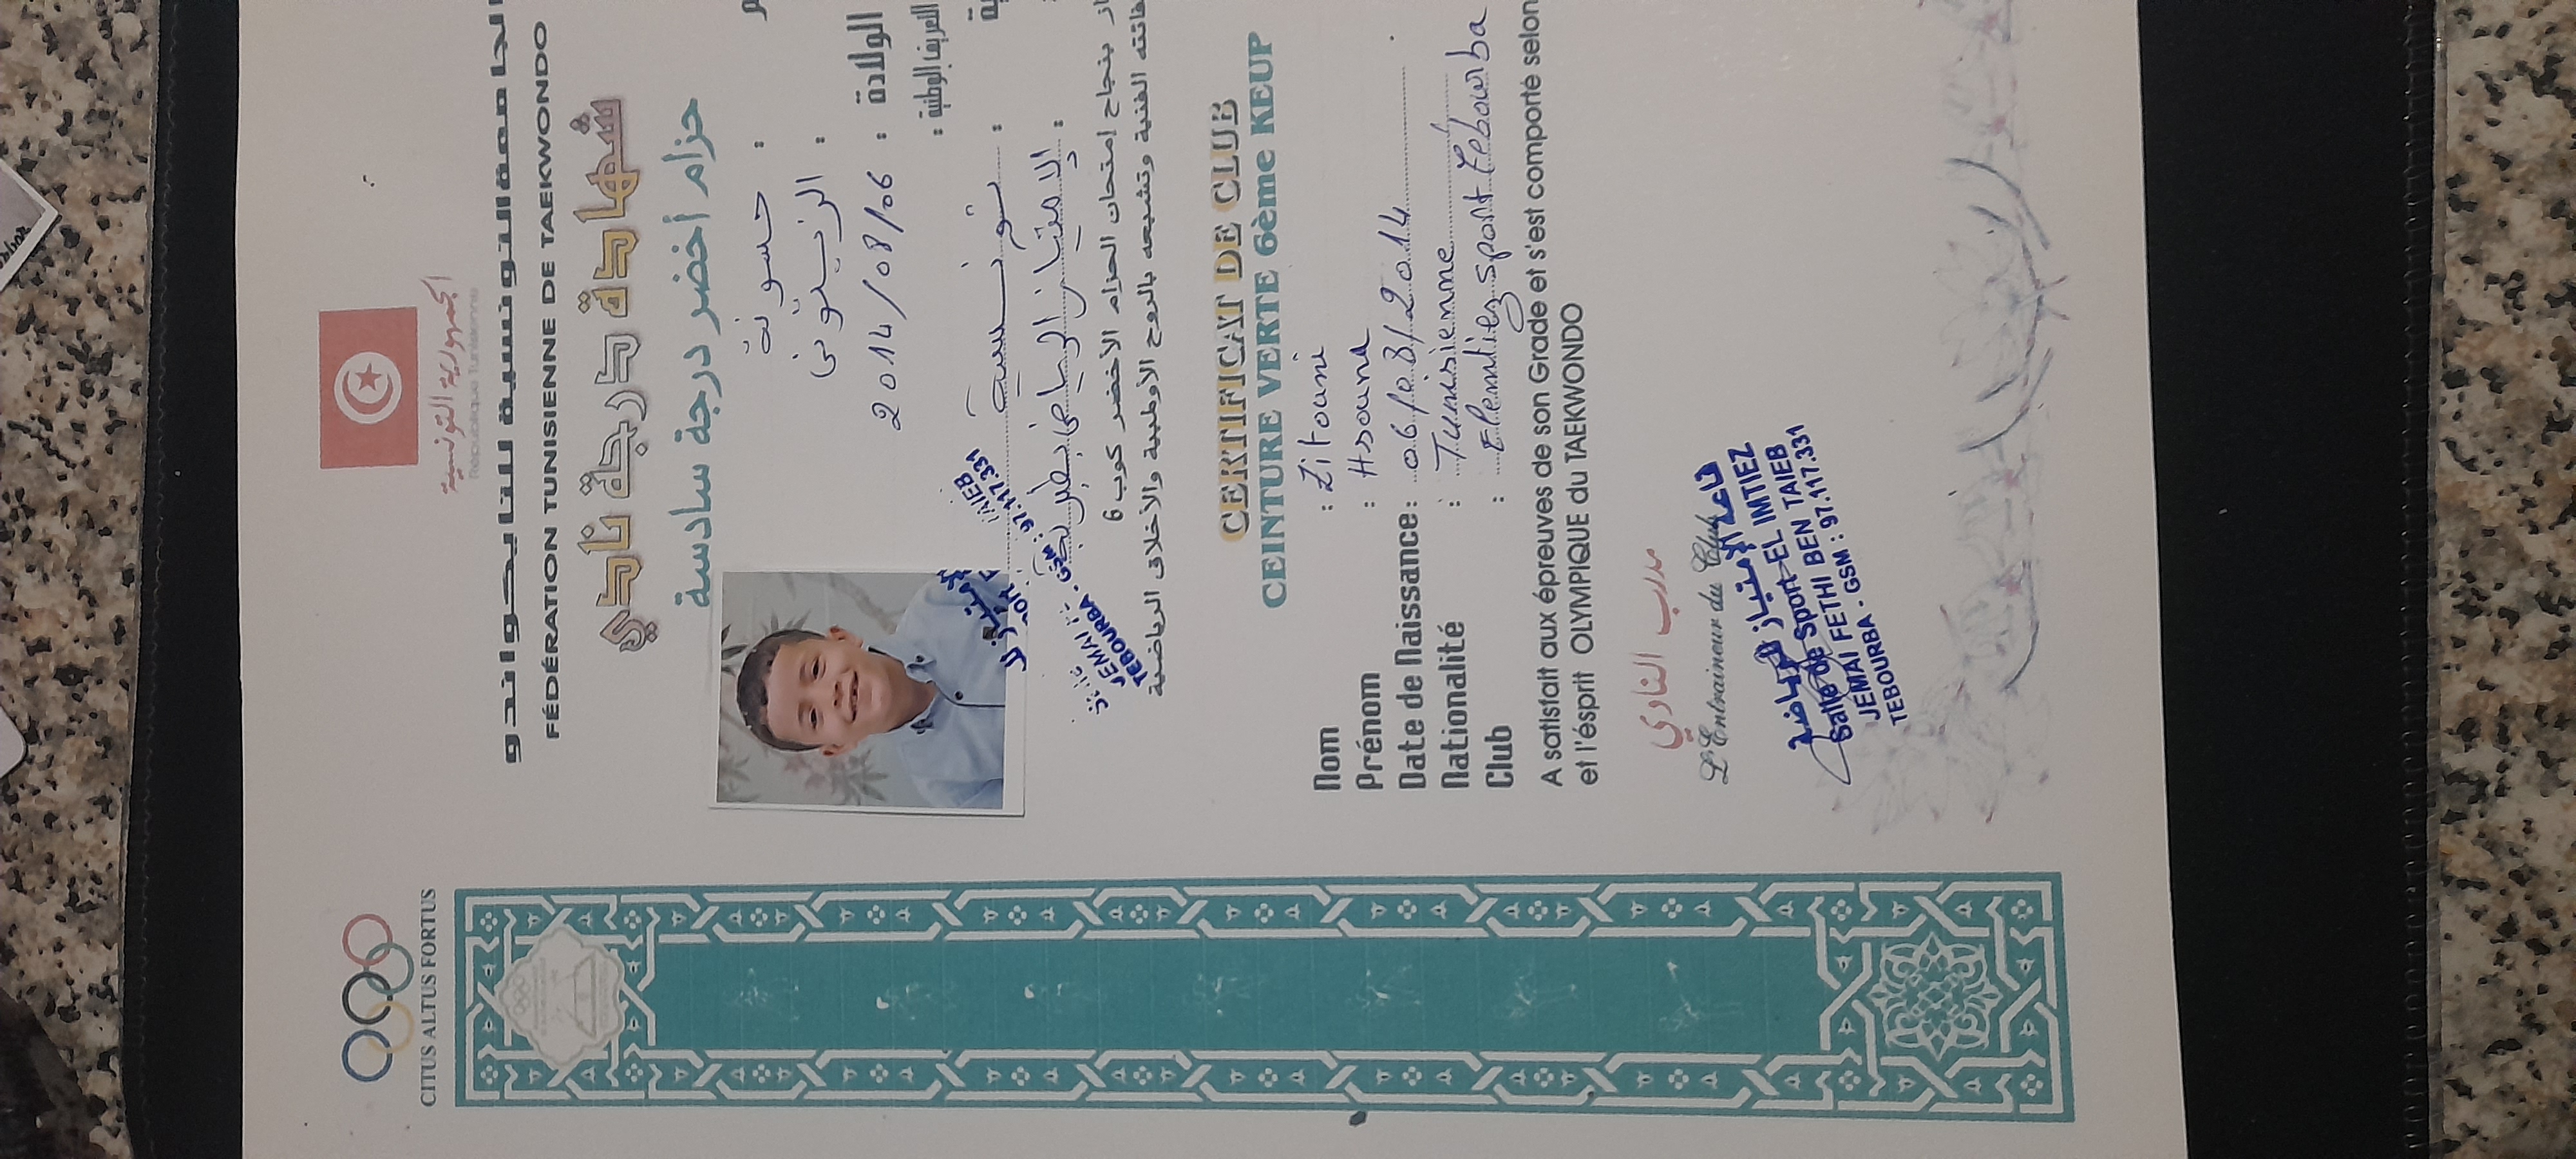 CITUS ALTUS FORTUS
الجمهورية التونسية
République Tunisienne
الجامعة التونسية للتايكواندو
FÉDÉRATION TUNISIENNE DE TAEKWONDO
شهادة درجة نادي
حزام أخضر درجة سادسة
: حسونة
: الزيتوني
الولادة : 2014/08/06
التعريف الوطنية :
: تونسية
: الامتياز الرياضي بطبربة
از بنجاح إمتحان الحزام الأخضر كوب 6
الفنية وتشبعه بالروح الأولمبية والأخلاق الرياضية
JEMAI
TEBOURBA
97.117.331
CERTIFICAT DE CLUB
CEINTURE VERTE 6ème KEUP
Nom : Zitouni
Prénom : Hsouna
Date de Naissance : 06/08/2014
Nationalité : Tunisienne
Club : Elemtiez sport Tebourba
A satisfait aux épreuves de son Grade et s'est comporté selon
et l'ésprit OLYMPIQUE du TAEKWONDO
مدرب النادي
L'Entraineur du Club
قاعة الإمتياز الرياضية
Salle de Sport EL IMTIEZ
JEMAI FETHI BEN TAIEB
TEBOURBA - GSM : 97.117.331